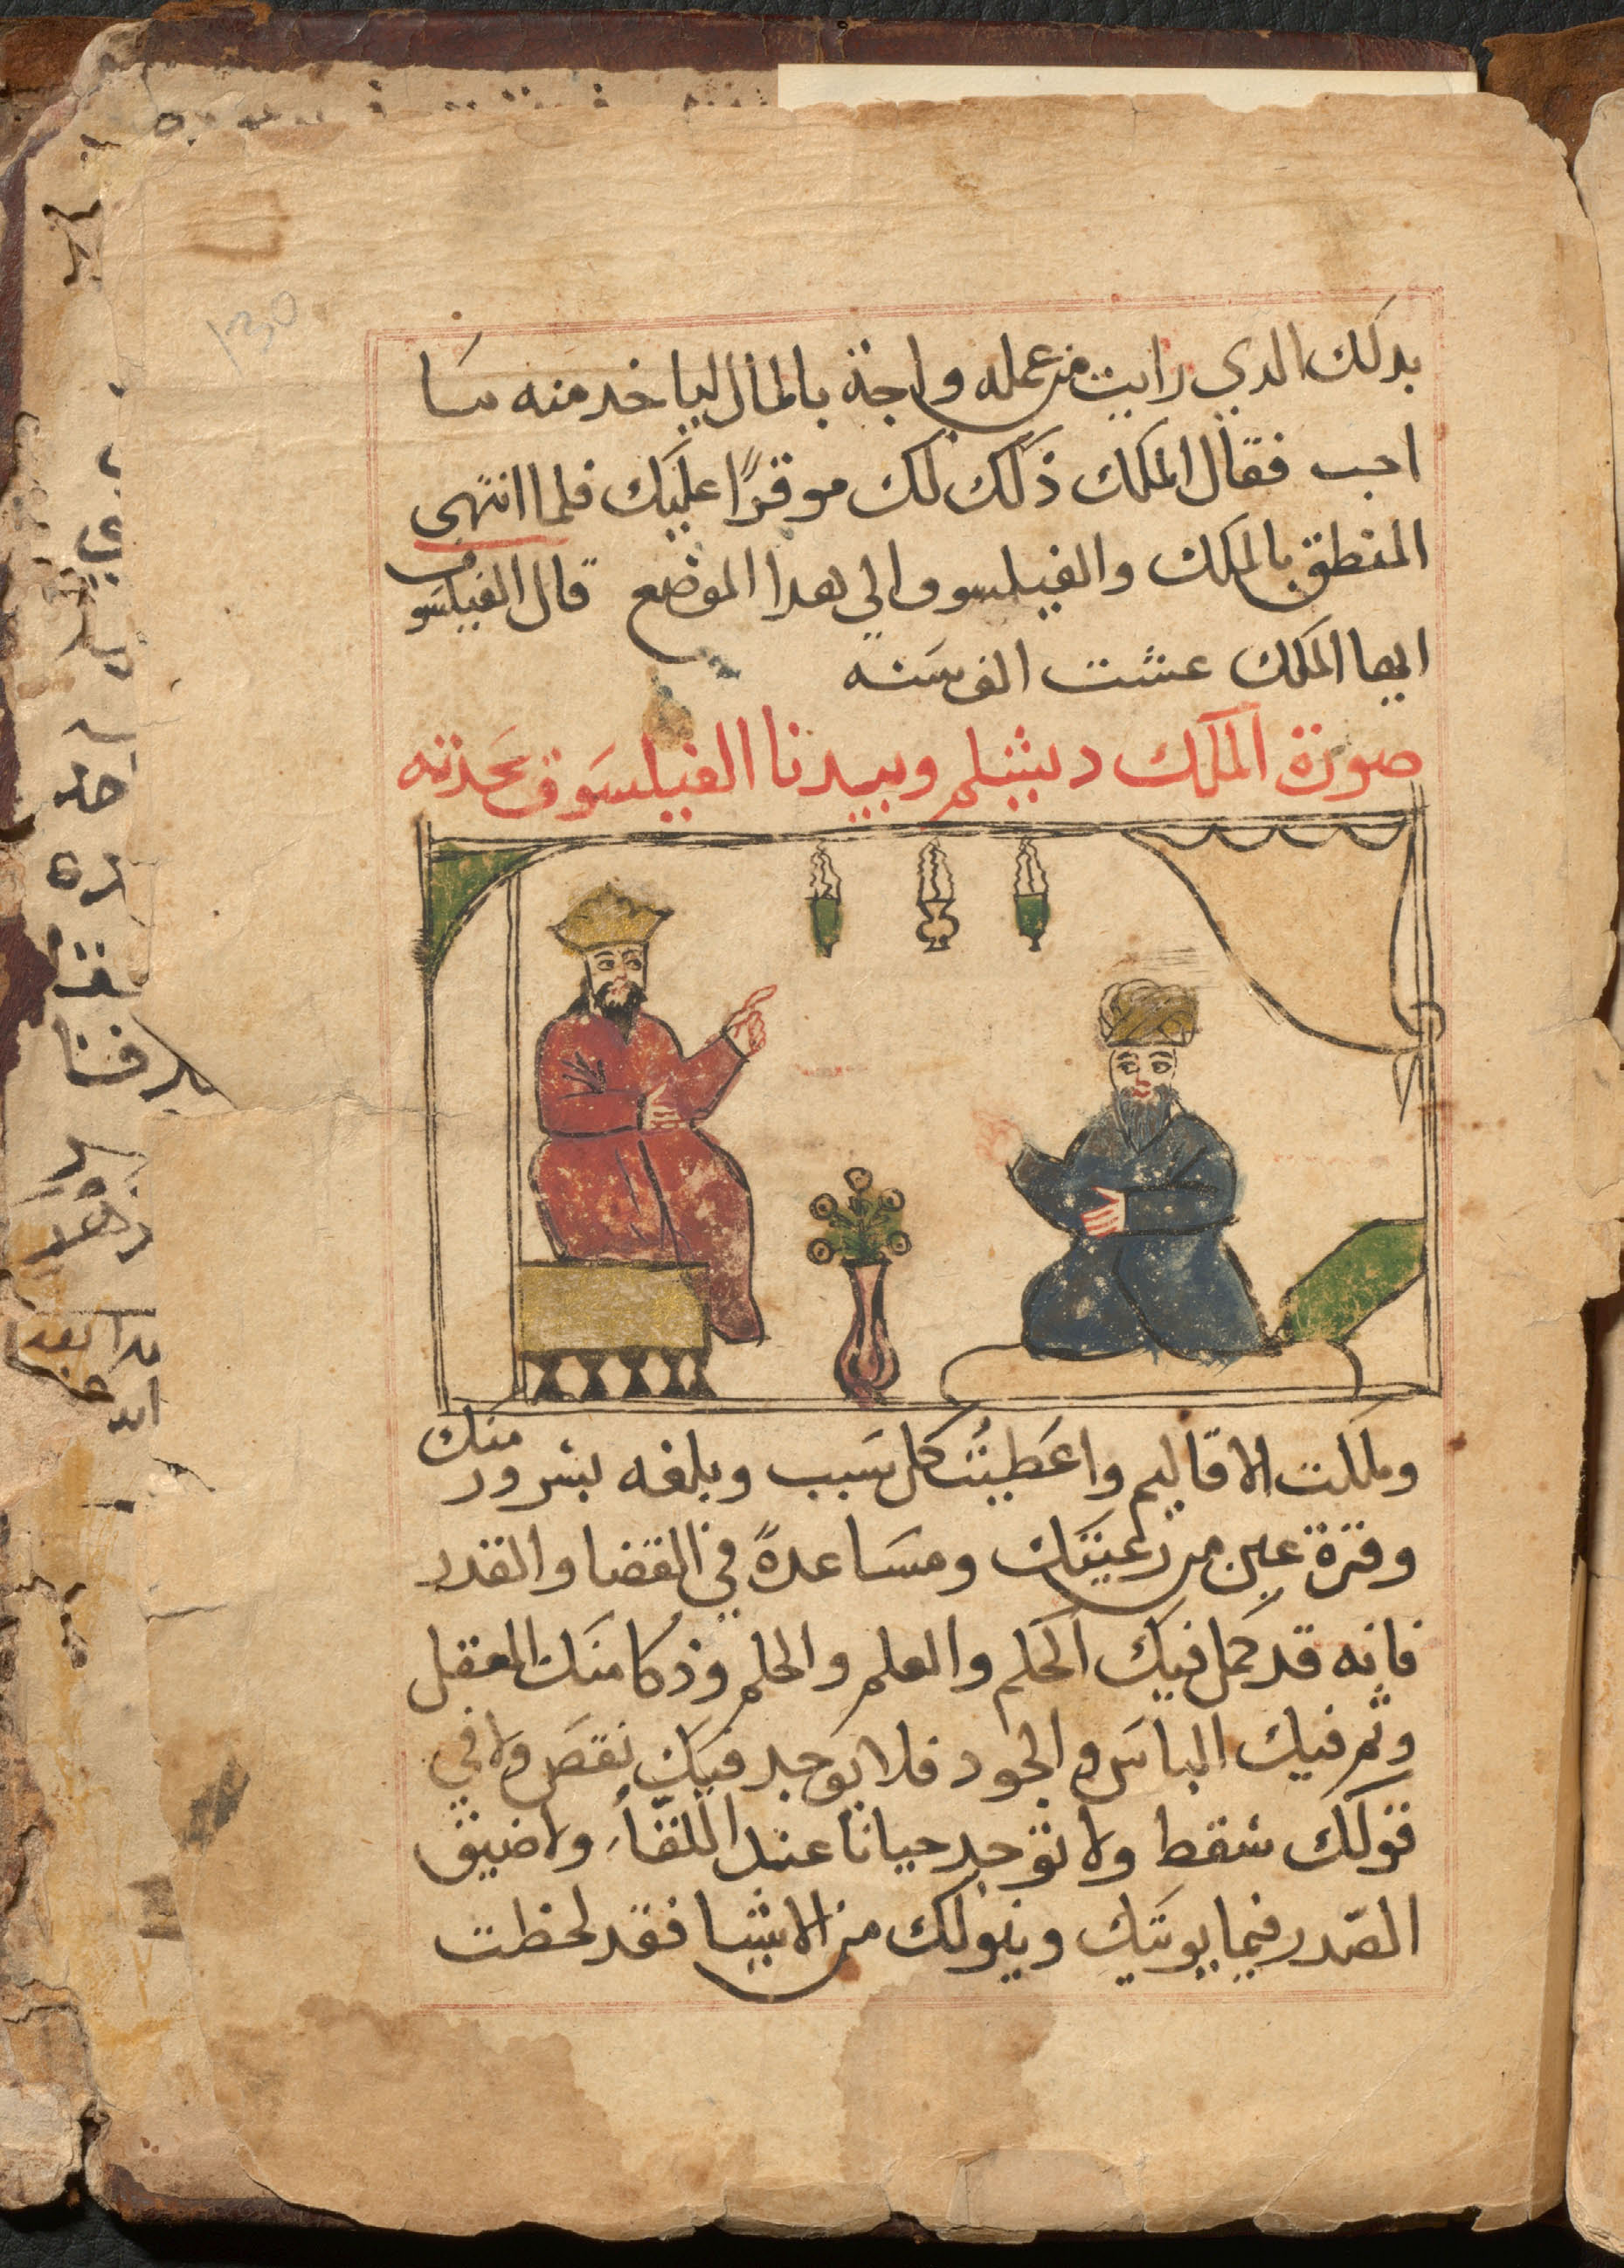 بدلك الدي رايت من عمله واجة بالمال لياخد منه ما سا
احب فقال الملك ذلك لك موقرًا عليك فلما انتهى
المنطق بالملك والفيلسوف الي هدا الموضع قال الفيلسوف
ايها الملك عشت الف سنه
صورة الملك دبشلم وبيدبا الفيلسوف يحدثه
وملكت الاقاليم واعطيت كل سبب وبلغه بسرور منك
وقرة عين من رعيتك ومساعدةً في القضا والقدر
فانه قد كمل فيك الحلم والعلم والحلم وذكا منك العقل
وتم فيك الباس والجود فلا يوجد فيك نقص ولا في
قولك سقط ولا توجد حيانا عند اللقاء ولا ضيق
الصدر فيما يوتيك وينولك من الاشيا فقد لحظت
130